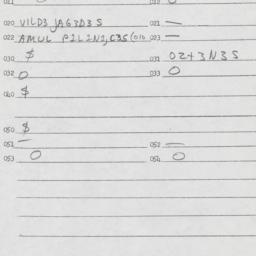 020 VILD3 JAG3D3S 021 —
022 AMUL P2L2N2,C3S(010 023 —
030 $ 031 02+3N3S
032 O 033 O
040 $
050 $
051 — 052 —
053 O 054 O